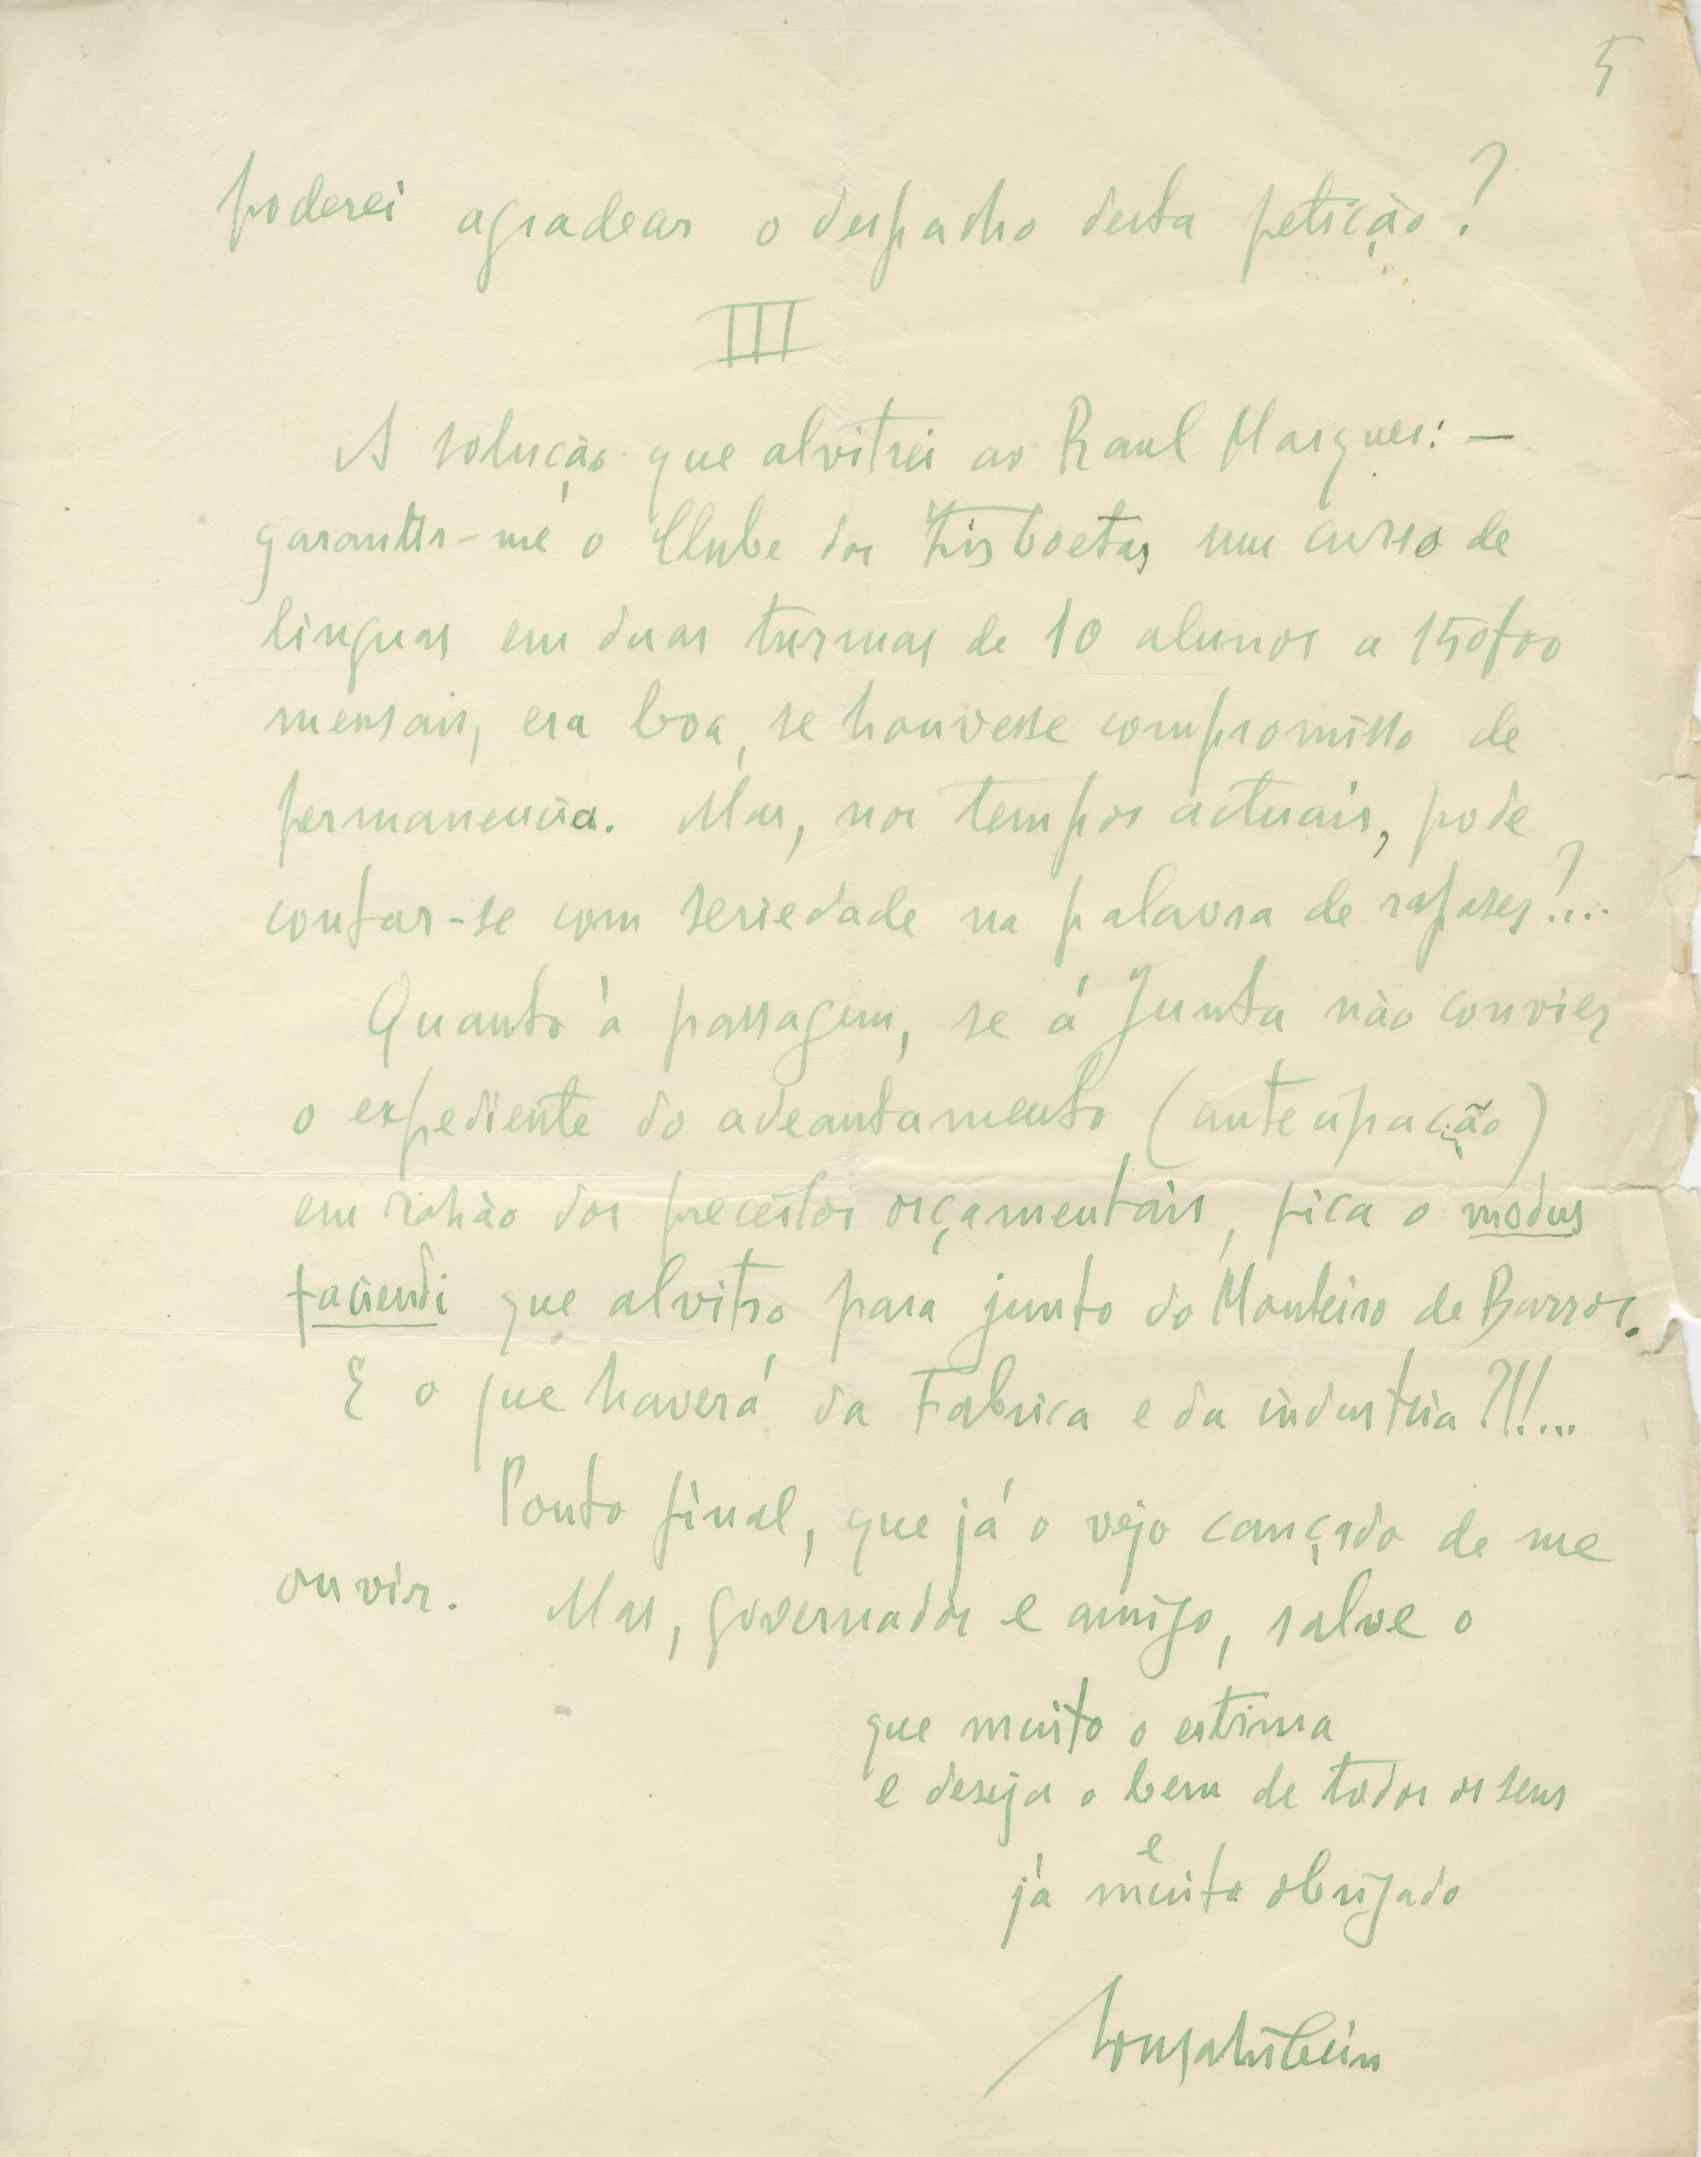 5
poderei agradecer o despacho desta petição?
III
A solução que alvitrei ao Raul Marques: —
garantir-me o Clube dos Lisboetas um curso de
linguas em duas turmas de 10 alunos a 150$00
mensais, era boa, se houvesse compromisso de
permanencia. Mas, nos tempos actuais, pode
contar-se com seriedade na palavra de rapazes?...
Quanto à passagem, se á Junta não convier
o expediente do adeantamento (antecipação)
em razão dos preceitos orçamentais, fica o modus
faciendi que alvitro para junto do Monteiro de Barros.
E o que haverá da Fabrica e da industria?!!...
Ponto final, que já o vejo cançado de me
ouvir. Mas, governador e amigo, salve o
que muito o estima
e deseja o bem de todos os seus
e
já muito obrigado